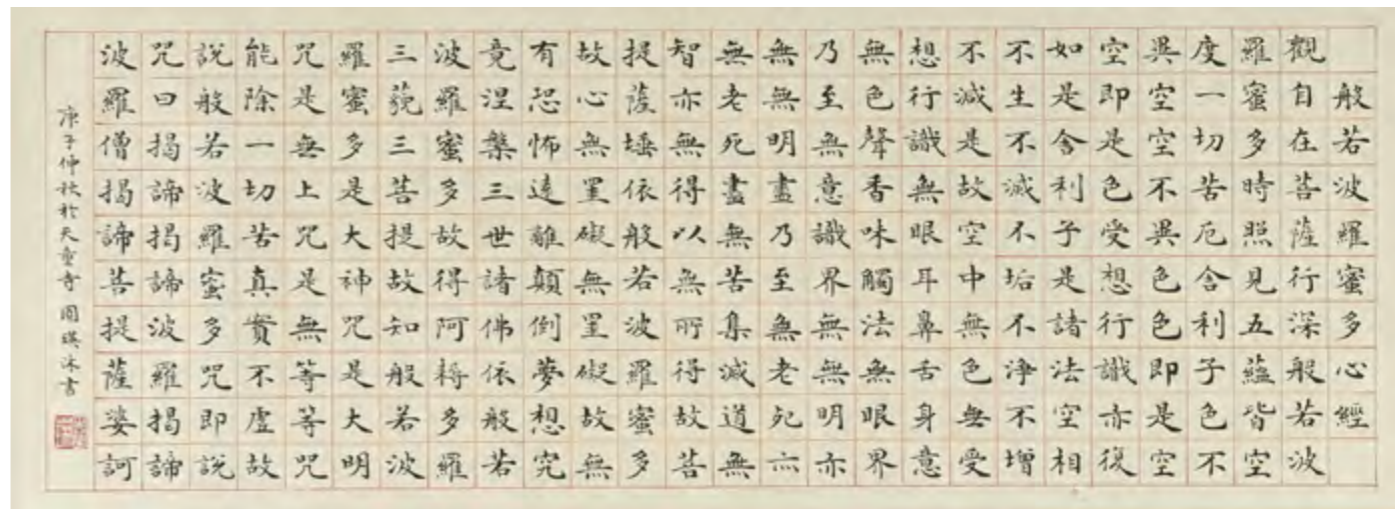 般若波羅蜜多心經
觀自在菩薩行深般若波
羅蜜多時照見五蘊皆空
度一切苦厄舍利子色不
異空空不異色色即是空
空即是色受想行識亦復
如是舍利子是諸法空相
不生不滅不垢不淨不增
不減是故空中無色無受
想行識無眼耳鼻舌身意
無色聲香味觸法無眼界
乃至無意識界無無明亦
無無明盡乃至無老死亦
無老死盡無苦集滅道無
智亦無得以無所得故菩
提薩埵依般若波羅蜜多
故心無罣礙無罣礙故無
有恐怖遠離顛倒夢想究
竟涅槃三世諸佛依般若
波羅蜜多故得阿耨多羅
三藐三菩提故知般若波
羅蜜多是大神咒是大明
咒是無上咒是無等等咒
能除一切苦真實不虛故
說般若波羅蜜多咒即說
咒曰揭諦揭諦波羅揭諦
波羅僧揭諦菩提薩婆訶
庚子仲秋於天童寺 周瑛沐書